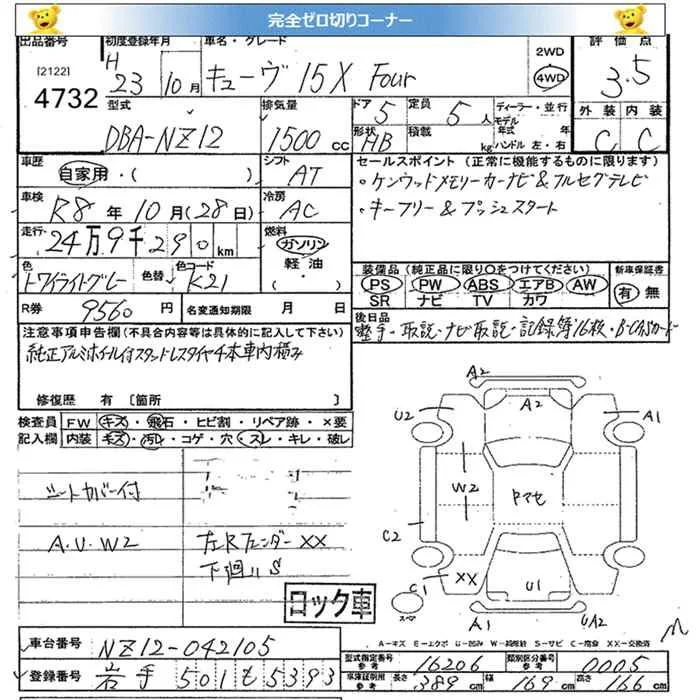 完全ゼロ切りコーナー
出品番号 初度登録年月 車名・グレード 2WD 評価点
[2122] H 23 10月 キューヴ 15X Four 4WD 3.5
4732 型式 排気量 ドア 5 定員 5人 ディーラー・並行 外装 内装
DBA-NZ12 1500cc 形状 HB 積載 kg モデル年式 年 ハンドル 左・右 C C
車歴 シフト セールスポイント (正常に機能するものに限ります)
自家用・( ) AT ・ケンウッドメモリーカーナビ&フルセグテレビ
車検 冷房 ・キーフリー&プッシュスタート
R8年10月(28日) AC
走行 燃料
24万9千290km ガソリン 装備品(純正品に限り○をつけてください) 新車保証書
色 色替 色コード 軽油 PS PW ABS エアB AW 有 無
トワイライトグレー K21 ・( ) SR ナビ TV カワ
R券 9560円 名変通知期限 月 日 後日品
注意事項申告欄(不具合内容等は具体的に記入して下さい) 整手・取説・ナビ取説・記録簿16枚・B-CASカード
純正アルミホイール付スタッドレスタイヤ4本車内積み
修復歴 有〔箇所 〕
検査員 FW キズ・飛石・ヒビ割・リペア跡・×要
記入欄 内装 キズ・汚レ・コゲ・穴・スレ・キレ・破レ
シートカバー付
A.U.W2 左Rフェンダー XX
下廻リS
ロック車
A2
U2 A2 A1
W2 ドマセ
C2
C1 XX U1
スペア A1 UA2
A-キズ E-エクボ U-凹み W-補修跡 S-サビ C-腐食 XX-交換済
車台番号 NZ12-042105 型式指定番号 参考 16206 類別区分番号 参考 0005
登録番号 岩手 501 も 5393 車庫証明用 参考 長さ 389cm 幅 169cm 高さ 166cm